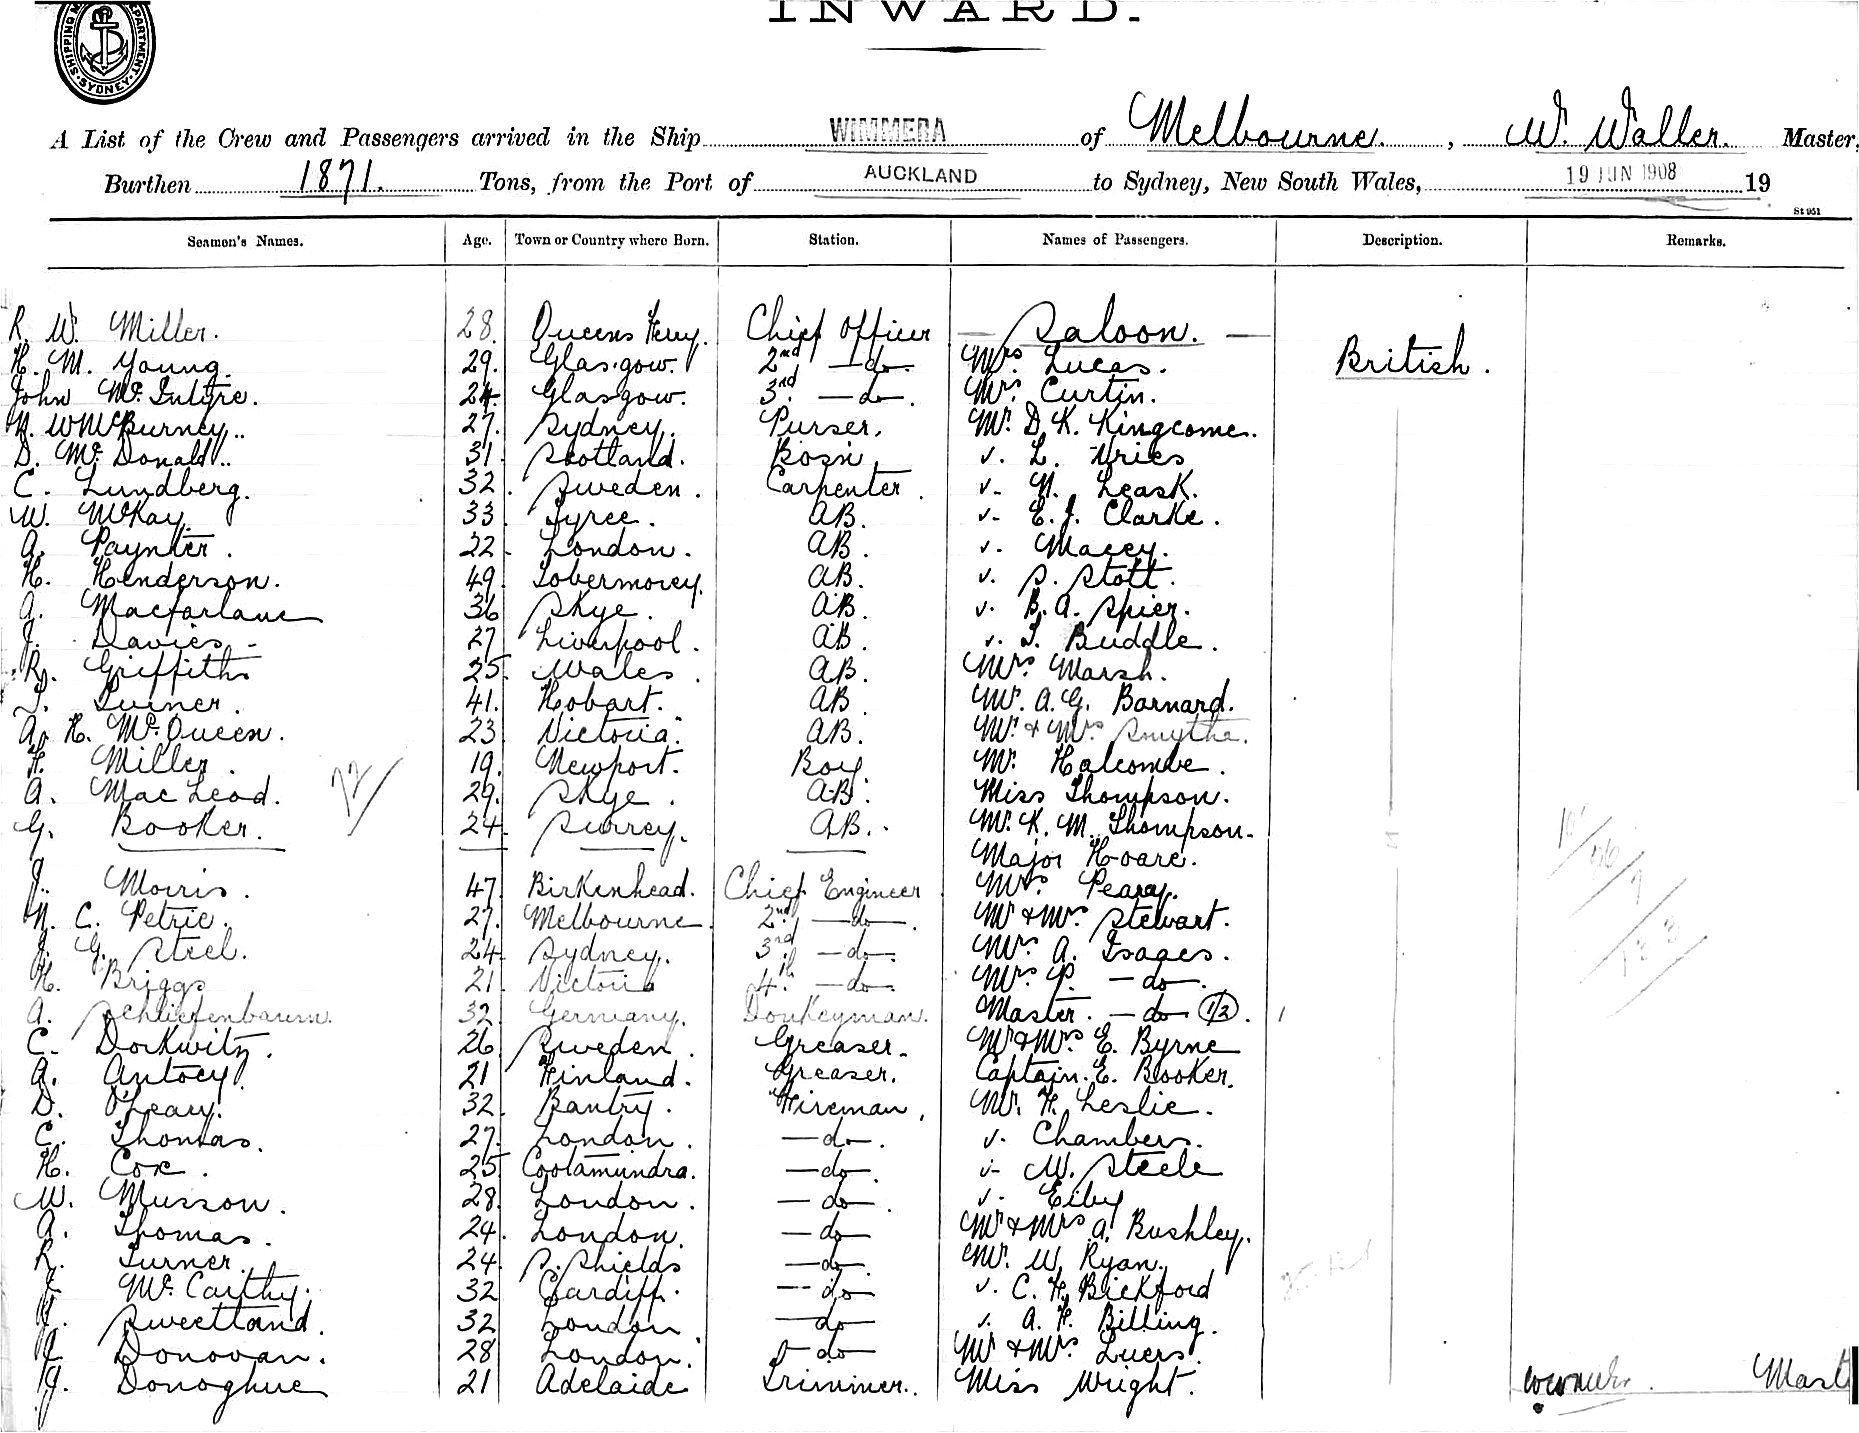 INWARD.
SHIPPING DEPARTMENT SYDNEY
A List of the Crew and Passengers arrived in the Ship WIMMERA of Melbourne. , W. Waller. Master,
Burthen 1871. Tons, from the Port of AUCKLAND to Sydney, New South Wales, 19 JUN 1908 19
St 951
Seamen's Names. Age. Town or Country where Born. Station. Names of Passengers. Description. Remarks.
R. W. Miller. 28. Queens Ferry. Chief Officer — Saloon. —
H. M. Young. 29. Glasgow. 2nd —do— Mrs Lucas. British.
John McIntyre. 24. Glasgow. 3rd —do—. Mrs Curtin.
N. W McBurney.. 27. Sydney. Purser. Mr. D. K. Kingcome.
D. McDonald.. 31. Scotland. Bosn. v. L. Vries
C. Lundberg. 32. Sweden. Carpenter. v. N. Leask.
W. McKay. 33. Tyree. AB. v. E. J. Clarke.
A. Paynter. 22. London. AB. v. Macey.
H. Henderson. 49. Tobermorey. AB. v. S. Stott.
A. Macfarlane 36 Skye. AB. v. B. A. Spier.
J. Davies - 27 Liverpool. AB. v. T. Buddle.
R. Griffiths 25. Wales. AB. Mrs. Marsh.
T. Turner. 41. Hobart. AB. Mr. A. G. Barnard.
A. H. McQueen. 23. Victoria. AB. Mr. & Mrs Smythe.
F. Miller. 19. Newport. Boy. Mr. Halcombe.
A. MacLeod. 29. Skye. AB. Miss Thompson.
G. Booker. 24. Surrey. AB. Mr. K. M. Thompson.
Major Hoare.
J. Morris. 47. Birkenhead. Chief Engineer Mrs. Peary.
N. C. Petrie. 27. Melbourne. 2nd —do—. Mr & Mrs. Stewart.
J. G. Steel. 24. Sydney. 3rd —do—. Mr. A. Isaacs.
H. Briggs 21. Victoria 4th —do—. Mrs. P. —do—.
A. Schliefenbaum. 32. Germany. Donkeyman. Master. —do— (1/2).
C. Dorkwitz. 26 Sweden. Greaser. Mr & Mrs. E. Byrne
A. Antoey. 21 Finland. Greaser. Captain. E. Booker.
D. O'Leary. 32. Bantry. Fireman. Mr. F. Leslie.
C. Thomas. 27. London. —do—. v. Chambers.
H. Cox. 25 Cootamundra. —do—. v. W. Steele
W. Musson. 28. London. —do—. v. Eiby
A. Thomas. 24. London. —do— Mr & Mrs A. Bushley.
R. Turner. 24. S. Shields —do—. Mr. W. Ryan.
J. McCarthy. 32 Cardiff. —do— v. C. H. Bickford
Sweetland. 32. London. —do— v. A. F. Billing.
Donovan. 28 London. —do— Mr & Mrs. Luers.
Donoghue 21 Adelaide Trimmer.. Miss Wright.